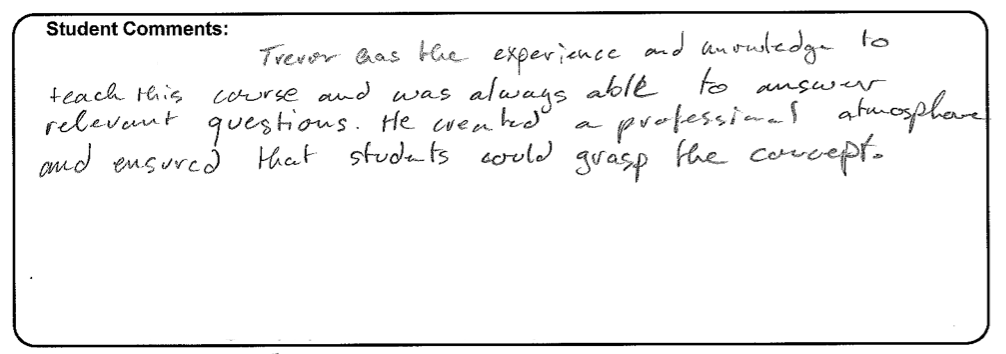 Student Comments:
Trevor has the experience and knowledge to
teach this course and was always able to answer
relevant questions. He created a professional atmosphere
and ensured that students could grasp the concept.